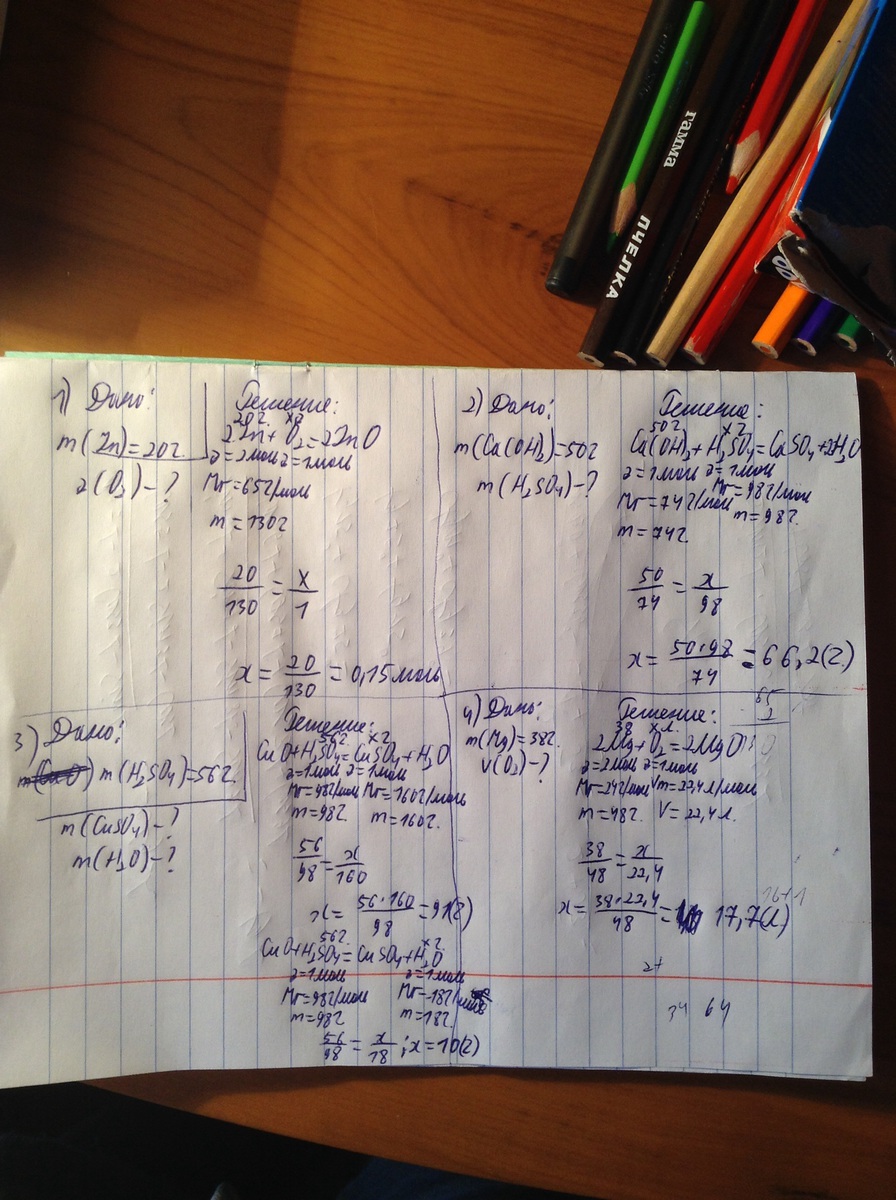 гамма
ПЧЕЛКА
1) Дано:
m(Zn)=20г.
ν(O2)-?
Решение:
20г. xν
2Zn+O2=2ZnO
ν=2моль ν=1моль
Mr=65г/моль
m=130г
20/130=x/1
x=20/130=0,15моль
2) Дано:
m(Ca(OH)2)=50г
m(H2SO4)-?
Решение:
50г xг
Ca(OH)2+H2SO4=CaSO4+2H2O
ν=1моль ν=1моль
Mr=98г/моль
Mr=74г/моль m=98г.
m=74г.
50/74=x/98
x=50·98/74=66,2(г)
3) Дано:
m(H2SO4)=56г.
m(CuSO4)-?
m(H2O)-?
Решение:
56г. xг.
CuO+H2SO4=CuSO4+H2O
ν=1моль ν=1моль
Mr=98г/моль Mr=160г/моль
m=98г m=160г.
56/98=x/160
x=56·160/98=91(г)
56г. xг.
CuO+H2SO4=CuSO4+H2O
ν=1моль ν=1моль
Mr=98г/моль Mr=18г/моль
m=98г m=18г.
56/98=x/18; x=10(г)
4) Дано:
m(Mg)=38г.
V(O2)-?
Решение:
38 xл.
2Mg+O2=2MgO
ν=2моль ν=1моль
Mr=24г/моль Vm=22,4л/моль
m=48г. V=22,4л.
38/48=x/22,4
x=38·22,4/48=17,7(л)
65
2
130
34 64